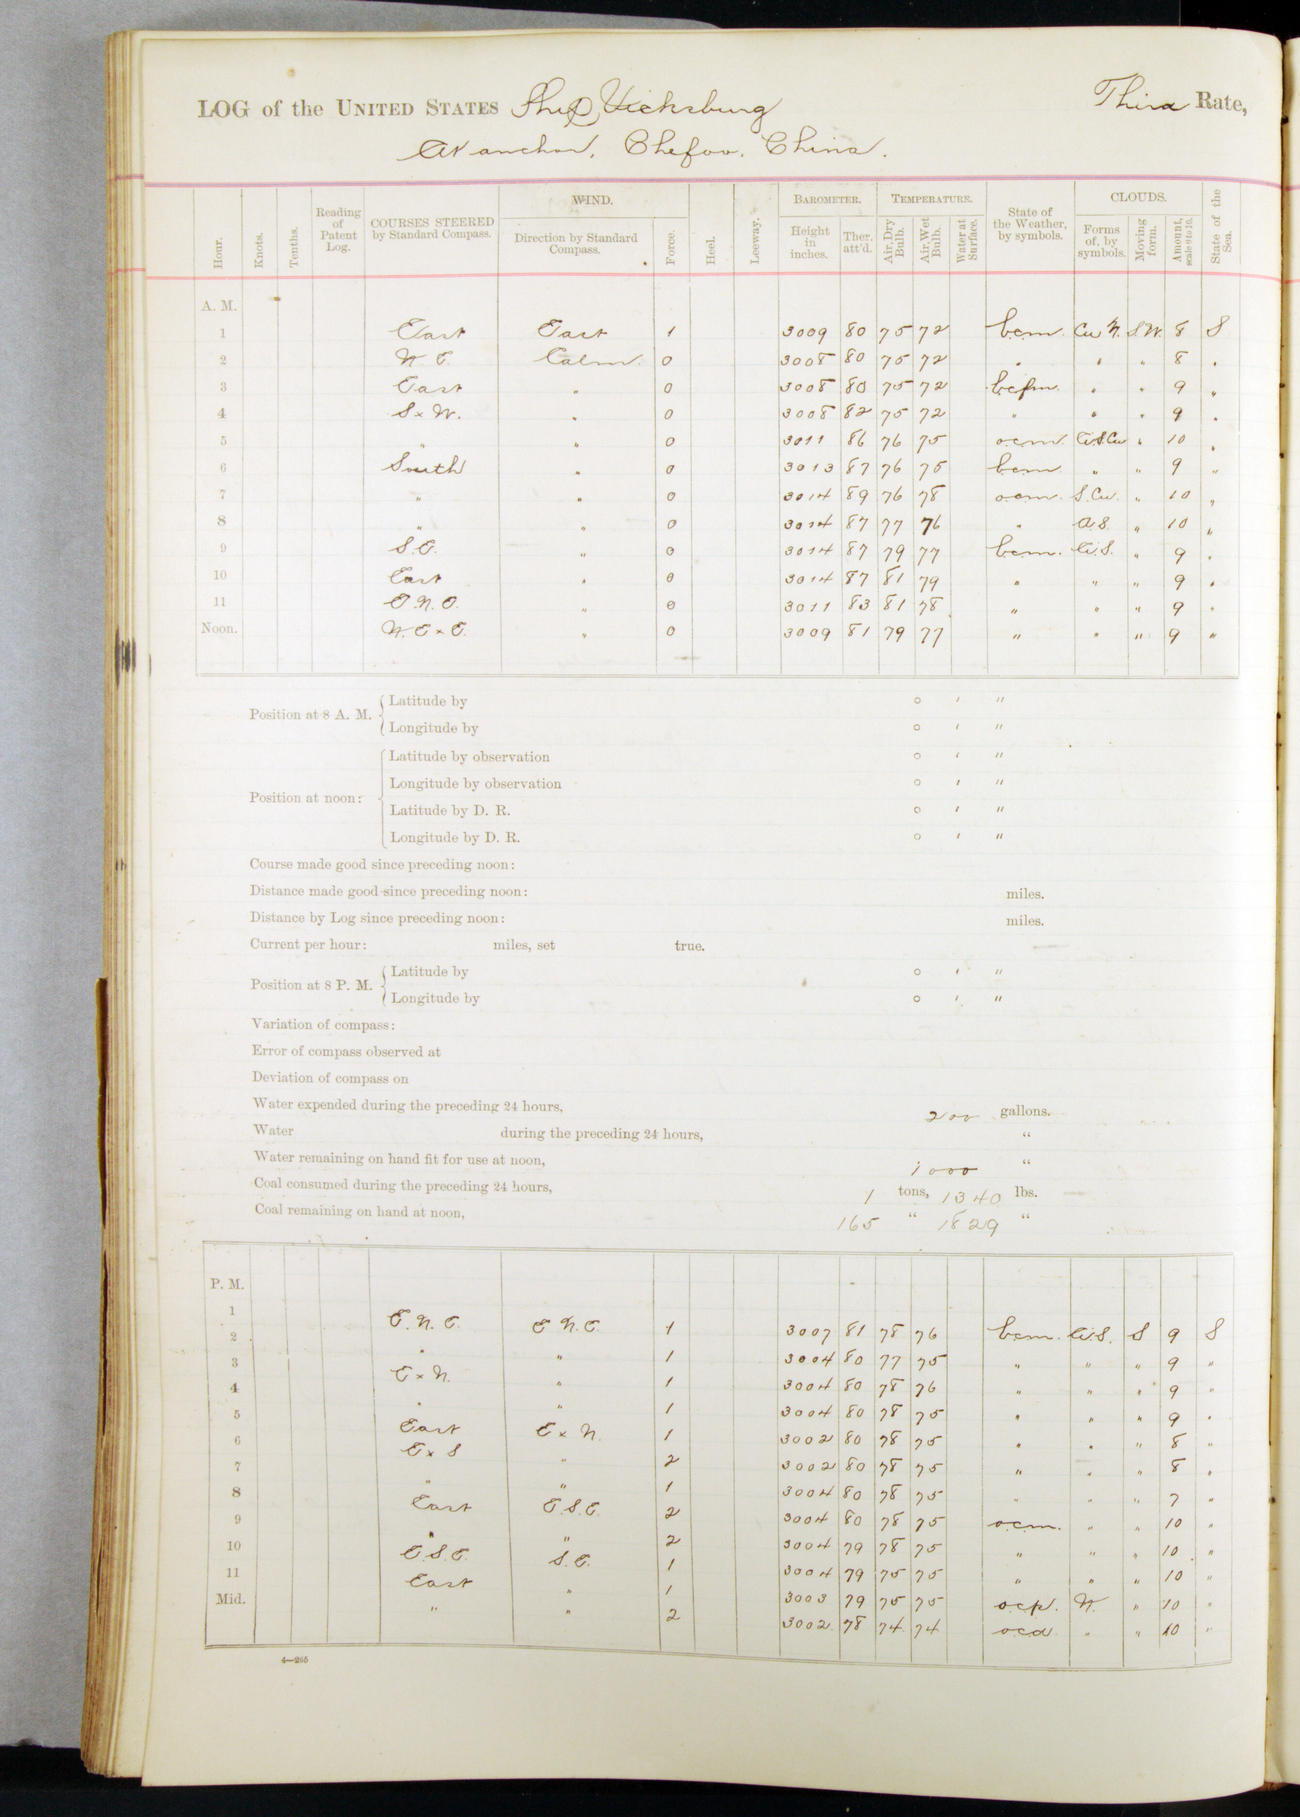 LOG of the UNITED STATES Ship Vicksburg Third Rate,
At anchor, Chefoo, China.
Hour. Knots. Tenths. Reading of Patent Log. COURSES STEERED by Standard Compass. WIND. Direction by Standard Compass. Force. Heel. Leeway. BAROMETER. Height in inches. Ther. att'd. TEMPERATURE. Air, Dry Bulb. Air, Wet Bulb. Water at Surface. State of the Weather, by symbols. CLOUDS. Forms of, by symbols. Moving form. Amount, scale 0 to 10. State of the Sea.
A. M.
1 East East 1 3009 80 75 72 bcm Cu N. S W. 8 S
2 N. E. Calm 0 3008 80 75 72 " " " 8 "
3 East " 0 3008 80 75 72 bcfm. " " 9 "
4 S x W. " 0 3008 82 75 72 " " " 9 "
5 " " 0 3011 86 76 75 ocm Ci.S.Cu " 10 "
6 South " 0 3013 87 76 75 bcm " " 9 "
7 " " 0 3014 89 76 78 ocm. S.Cu. " 10 "
8 " " 0 3014 87 77 76 " A.S. " 10 "
9 S.E. " 0 3014 87 79 77 bcm. Ci.S. " 9 "
10 East " 0 3014 87 81 79 " " " 9 "
11 E.N.E. " 0 3011 83 81 78 " " " 9 "
Noon. N.E x E. " 0 3009 81 79 77 " " " 9 "
Position at 8 A. M. Latitude by ° ′ ″
Longitude by ° ′ ″
Latitude by observation ° ′ ″
Longitude by observation ° ′ ″
Position at noon:
Latitude by D. R. ° ′ ″
Longitude by D. R. ° ′ ″
Course made good since preceding noon:
Distance made good since preceding noon: miles.
Distance by Log since preceding noon: miles.
Current per hour: miles, set true.
Position at 8 P. M. Latitude by ° ′ ″
Longitude by ° ′ ″
Variation of compass:
Error of compass observed at
Deviation of compass on
Water expended during the preceding 24 hours, 200 gallons.
Water during the preceding 24 hours, "
Water remaining on hand fit for use at noon, 1000 "
Coal consumed during the preceding 24 hours, 1 tons, 1340 lbs.
Coal remaining on hand at noon, 165 " 1829 "
P. M.
1 E.N.E. E N.E. 1 3007 81 78 76 bcm. Ci.S. S 9 S
2 " " 1 3004 80 77 75 " " " 9 "
3 E x N. " 1 3004 80 78 76 " " " 9 "
4 " " 1 3004 80 78 75 " " " 9 "
5 East E x N. 1 3002 80 78 75 " " " 8 "
6 E x S " 2 3002 80 78 75 " " " 8 "
7 " " 1 3004 80 78 75 " " " 7 "
8 East E.S.E. 2 3004 80 78 75 ocm. " " 10 "
9 " " 2 3004 79 78 75 " " " 10 "
10 E.S.E. S.E. 1 3004 79 75 75 " " " 10 "
11 East " 1 3003 79 75 75 ocp. N. " 10 "
Mid. " " 2 3002 78 74 74 ocd " " 10 "
4—265